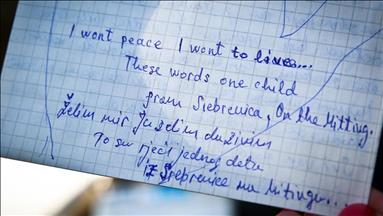 I wont peace I wont to live...
These words one child
from Srebrenica, On the Mitting.
Želim mir Ja želim da živim
To su rječi jednog deteta
iz Srebrenice na Mitingu...